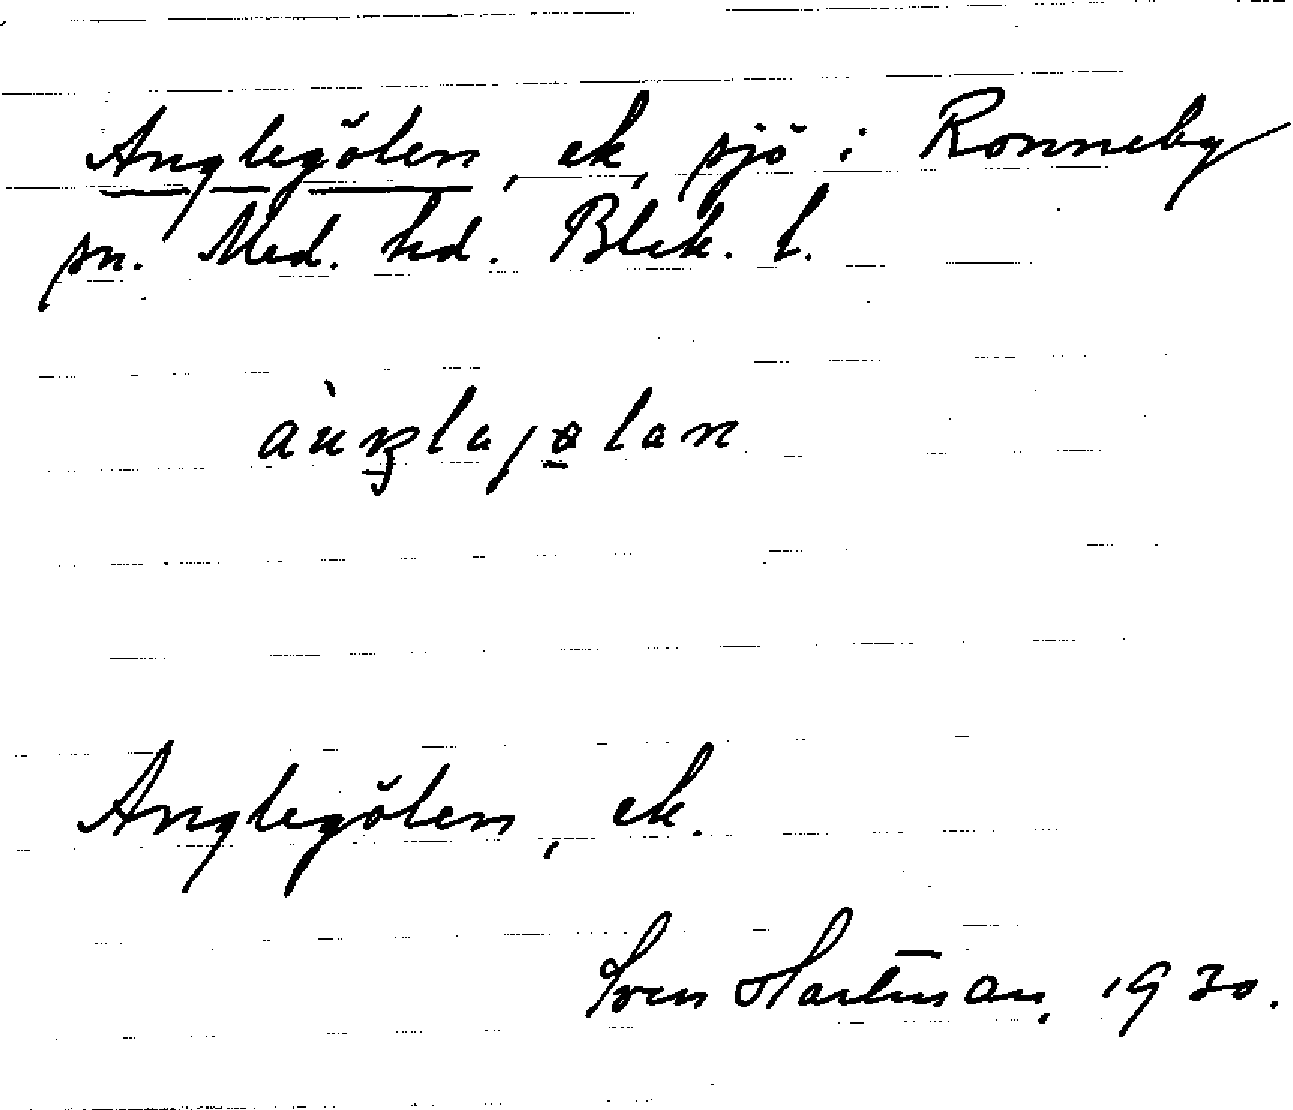 Anglegölen, ek, sjö i Ronneby
sn. Med. hd. Blek. l.
Anglegölen, ek.
Sven Hartman, 1930.